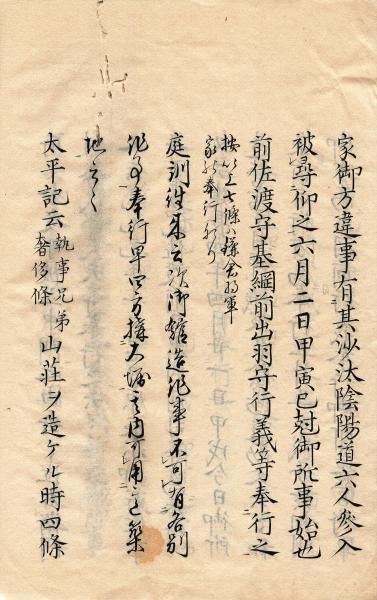 家御方違事有其沙汰陰陽道六人參入
被尋仰之六月二日甲寅巳尅御所事始也
前佐渡守基綱前出羽守行義等奉行之
按以上七條ハ鎌倉将軍
家の奉行なり
庭訓往来云次御館造作事不可有各別
作事奉行早四方構大堀其内可用意築
地云々
太平記云執事兄弟奢侈條山荘ヲ造ケル時四條